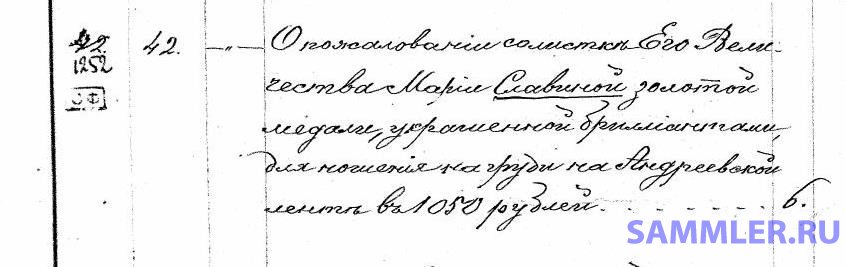 42. 42. —„— О пожалованіи солисткѣ Его Вели-
1252 чества Маріи Славиной золотой
медали, украшенной брилліантами,
для ношенія на груди на Андреевской
лентѣ въ 1050 рублей. . . . . . . . 6.
SAMMLER.RU